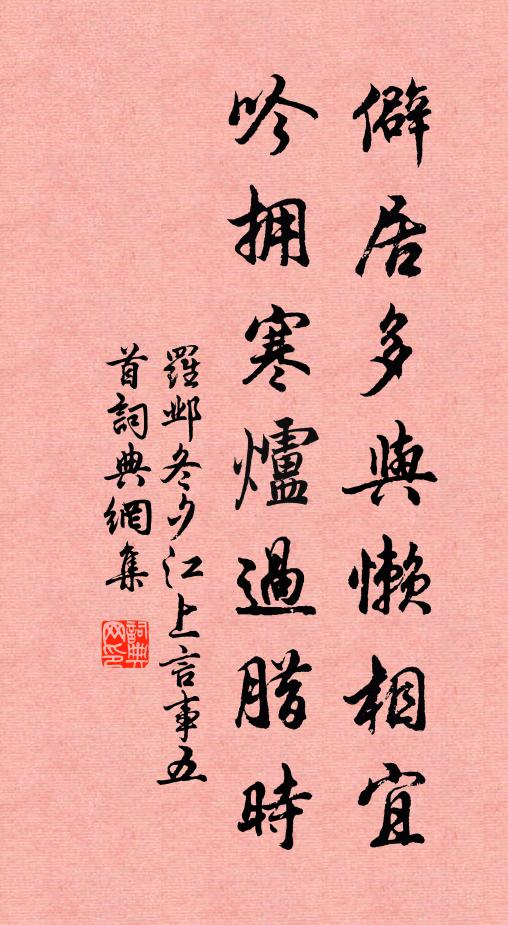 僻居多與懶相宜
吟拥寒爐過腊時
羅邺冬夕江上言事五
首詞典網集
詞典
网印